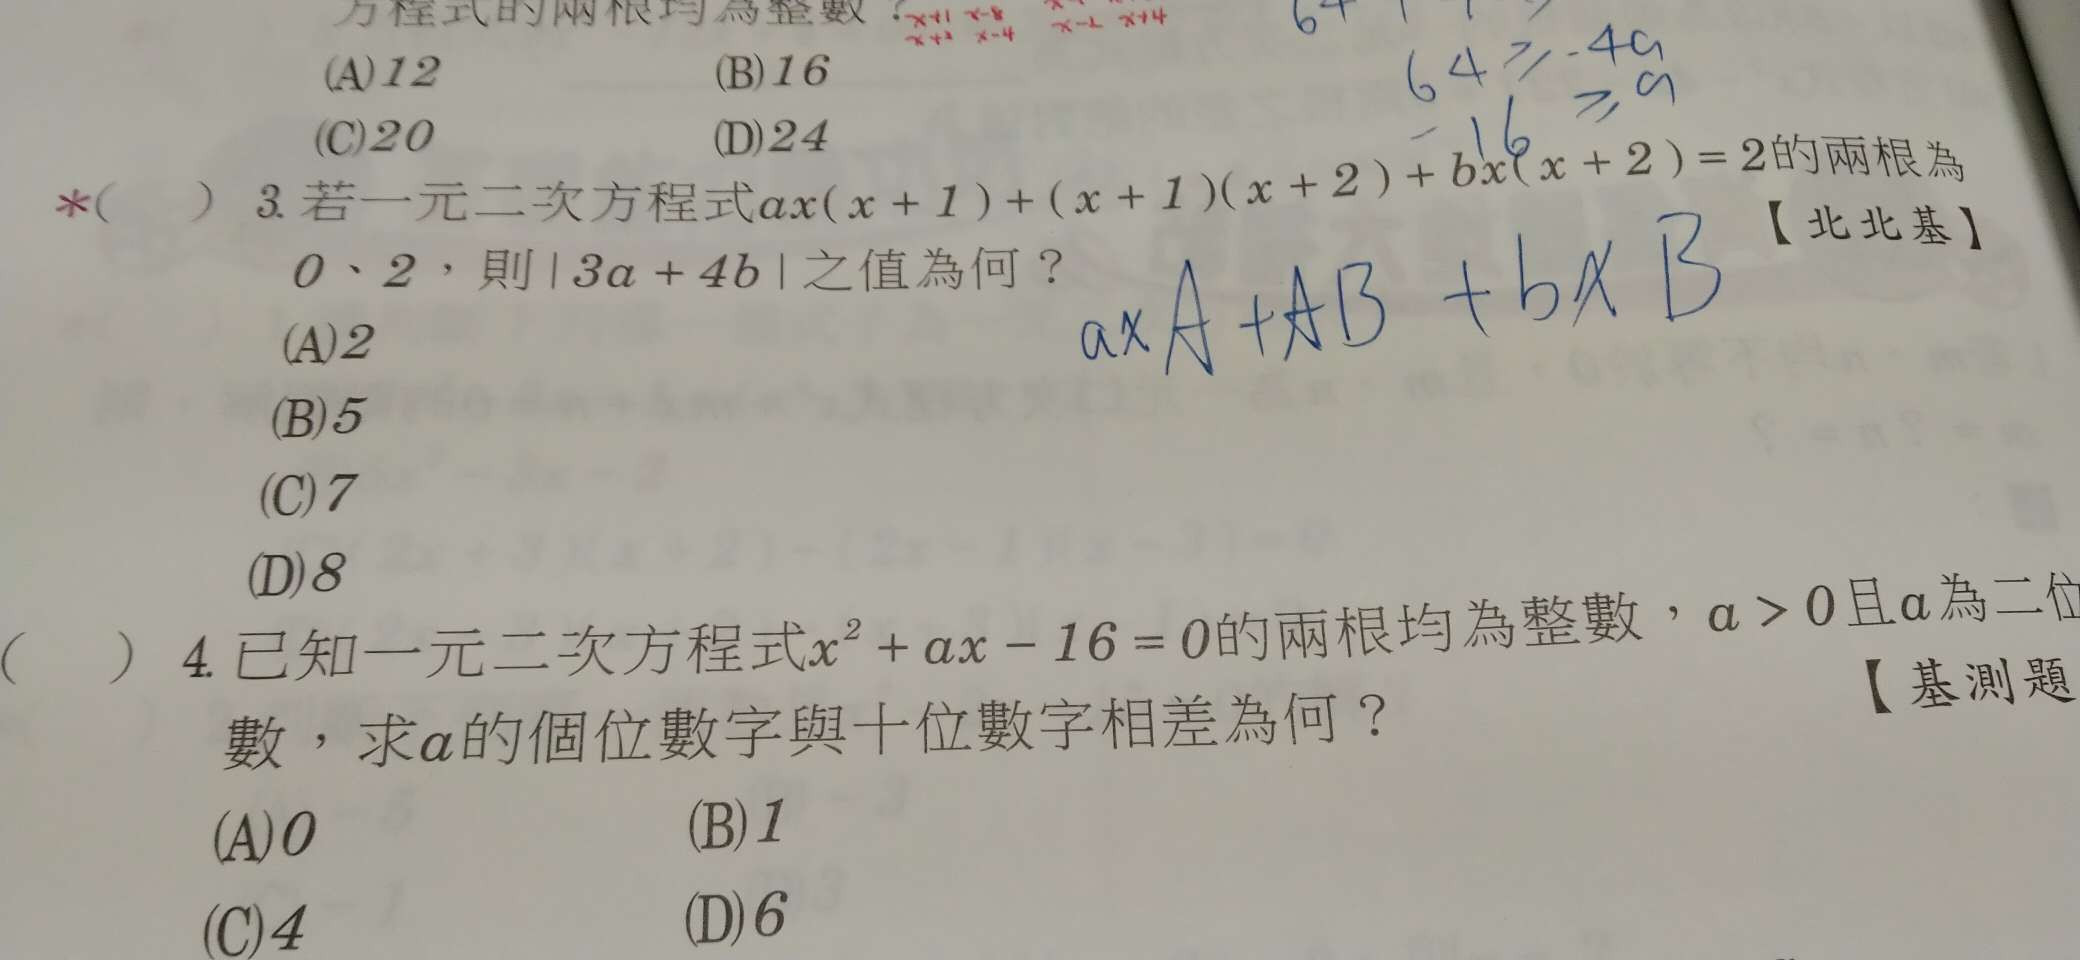 方程式的兩根均為整數？
x+1 x-8
x+2 x-4
x-2 x+4
64≥-4a
-16≥a
(A)12 (B)16
(C)20 (D)24
*( ) 3. 若一元二次方程式ax(x+1)+(x+1)(x+2)+bx(x+2)=2的兩根為
0、2，則|3a+4b|之值為何？ 【北北基】
axA+AB+bxB
(A)2
(B)5
(C)7
(D)8
( ) 4. 已知一元二次方程式x²+ax-16=0的兩根均為整數，a>0且a為二位
數，求a的個位數字與十位數字相差為何？ 【基測題
(A)0 (B)1
(C)4 (D)6